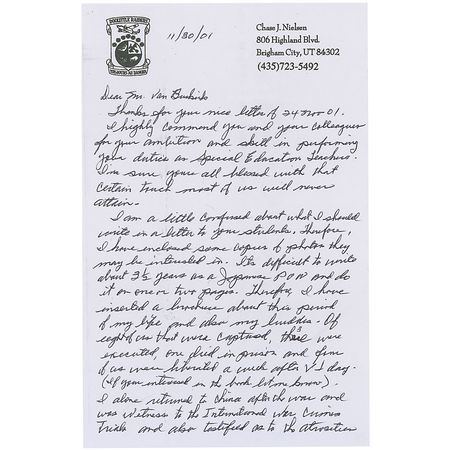 DOOLITTLE RAIDERS
11/30/01
Chase J. Nielsen
806 Highland Blvd.
Brigham City, UT 84302
(435)723-5492
Dear Mr. Van
Thanks for your nice letter of 24 Nov 01.
I highly commend you and your colleagues
for your ambition and skill in performing
your duties as Special Education Teachers.
I'm sure youre all blessed with that
certain touch most of us will never
attain.
I am a little confused about what I should
write in a letter to your students, Therefore,
I have enclosed some copies of photos they
may be interested in. Its difficult to write
about 3½ years as a Japanese POW and do
it on one or two pages. Therefore, I have
inserted a brochure about this period
of my life and also my buddies. Of
eight of us that were captured, 3 were
executed, one died in prison and four
of us were liberated a week after VJ day.
(If your interested in the book let me know).
I alone returned to China after the war and
was witness to the International War Crimes
Trials and also testified as to the atrocities